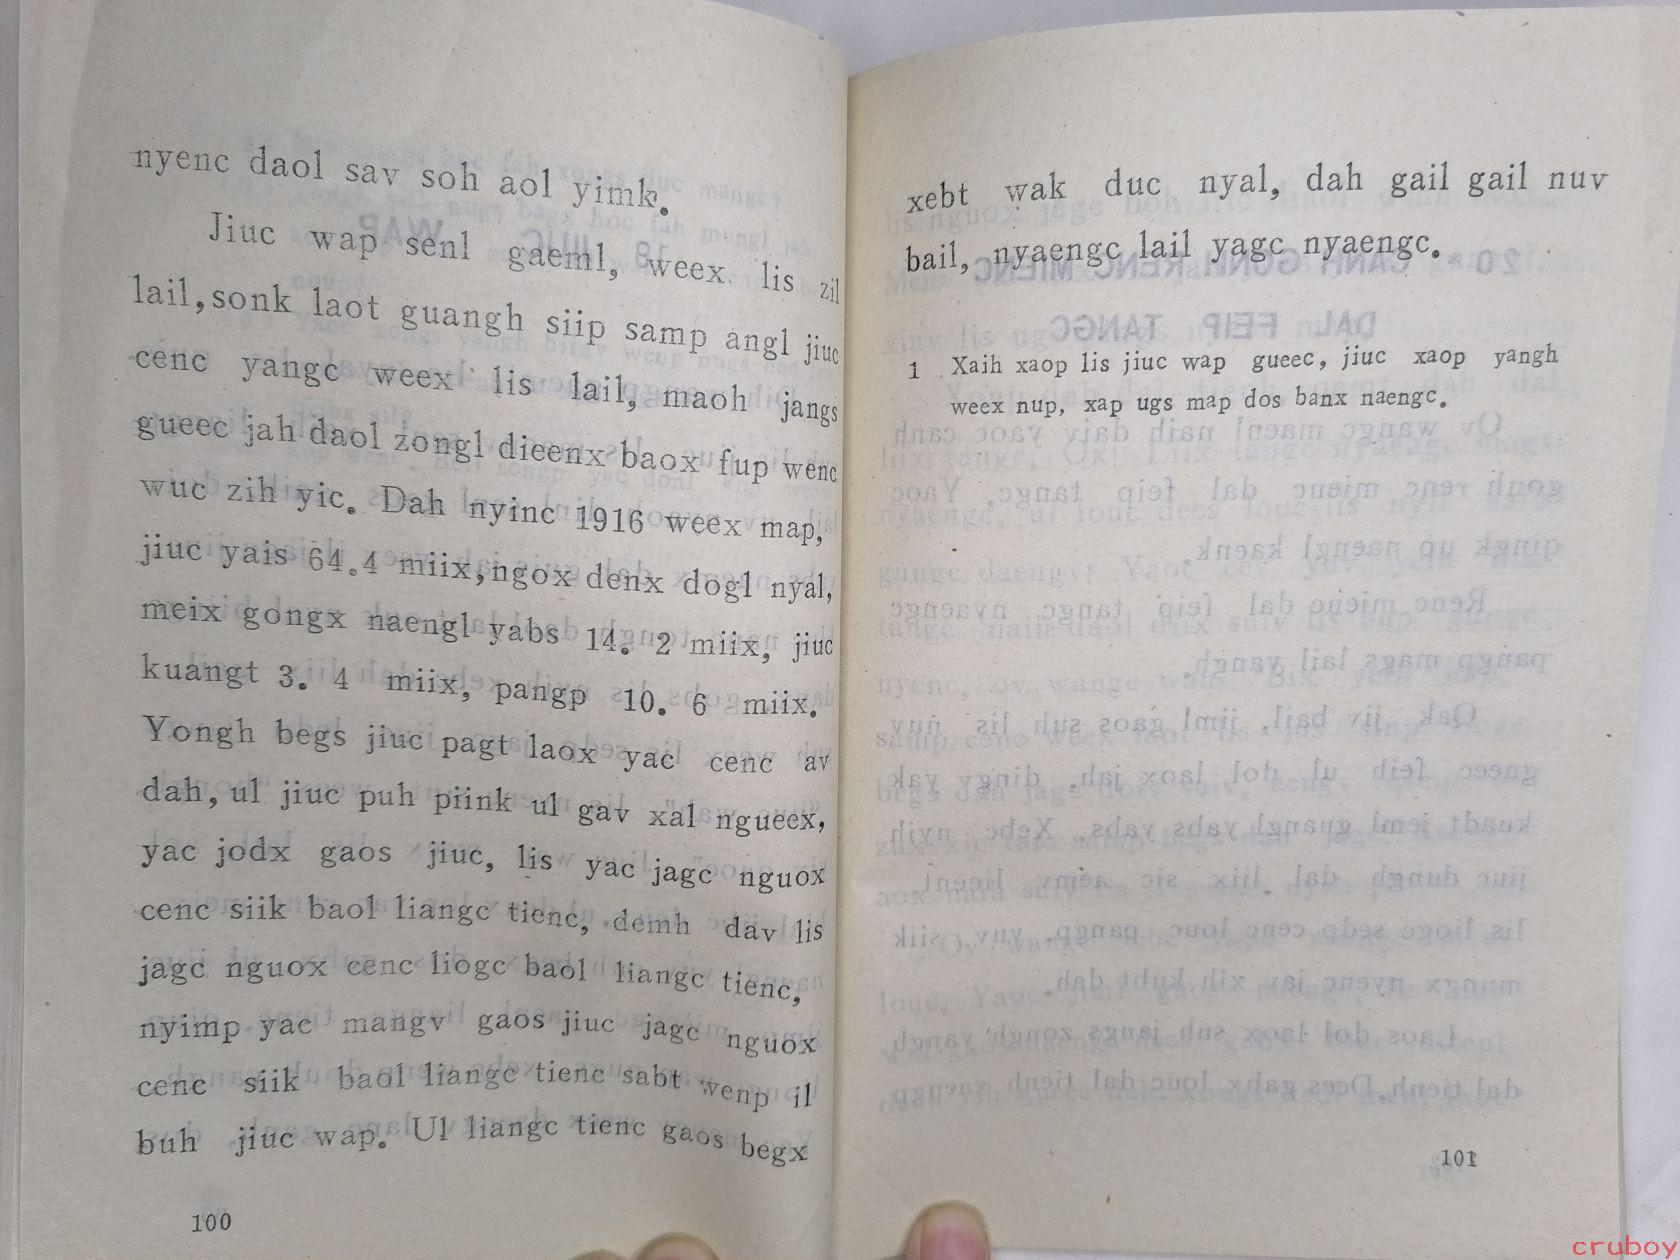 nyenc daol sav soh aol yimk.
Jiuc wap senl gaeml, weex lis zil
lail, sonk laot guangh siip samp angl jiuc
cenc yangc weex lis lail, maoh jangs
gueec jah daol zongl dieenx baox fup wenc
wuc zih yic. Dah nyinc 1916 weex map,
jiuc yais 64.4 miix, ngox denx dogl nyal,
meix gongx naengl yabs 14. 2 miix, jiuc
kuangt 3. 4 miix, pangp 10. 6 miix.
Yongh begs jiuc pagt laox yac cenc av
dah, ul jiuc puh piink ul gav xal ngueex,
yac jodx gaos jiuc, lis yac jagc nguox
cenc siik baol liangc tienc, demh dav lis
jagc nguox cenc liogc baol liangc tienc,
nyimp yac mangv gaos jiuc jagc nguox
cenc siik baol liangc tienc sabt wenp il
buh jiuc wap. Ul liangc tienc gaos begx
100
xebt wak duc nyal, dah gail gail nuv
bail, nyaengc lail yagc nyaengc.
1 Xaih xaop lis jiuc wap gueec, jiuc xaop yangh
weex nup, xap ugs map dos banx naengc.
101
cruboy